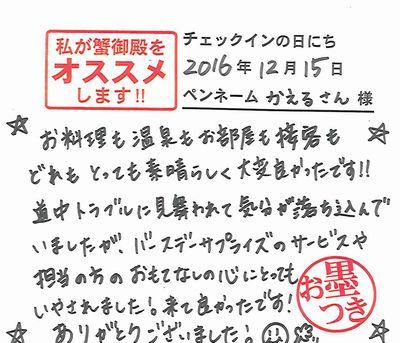 私が蟹御殿を
オススメ
します!!
チェックインの日にち
2016年12月15日
ペンネーム かえるさん 様
お料理も温泉もお部屋も接客も
どれもとっても素晴らしく大変良かったです!!
道中トラブルに見舞われて気分が落ち込んで
いましたが、バースデーサプライズのサービスや
担当の方のおもてなしの心にとっても
いやされました!来て良かったです!
ありがとうございました!
お墨つき